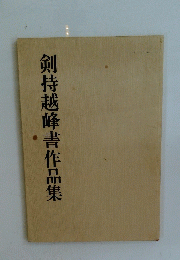 剣持越峰書作品集